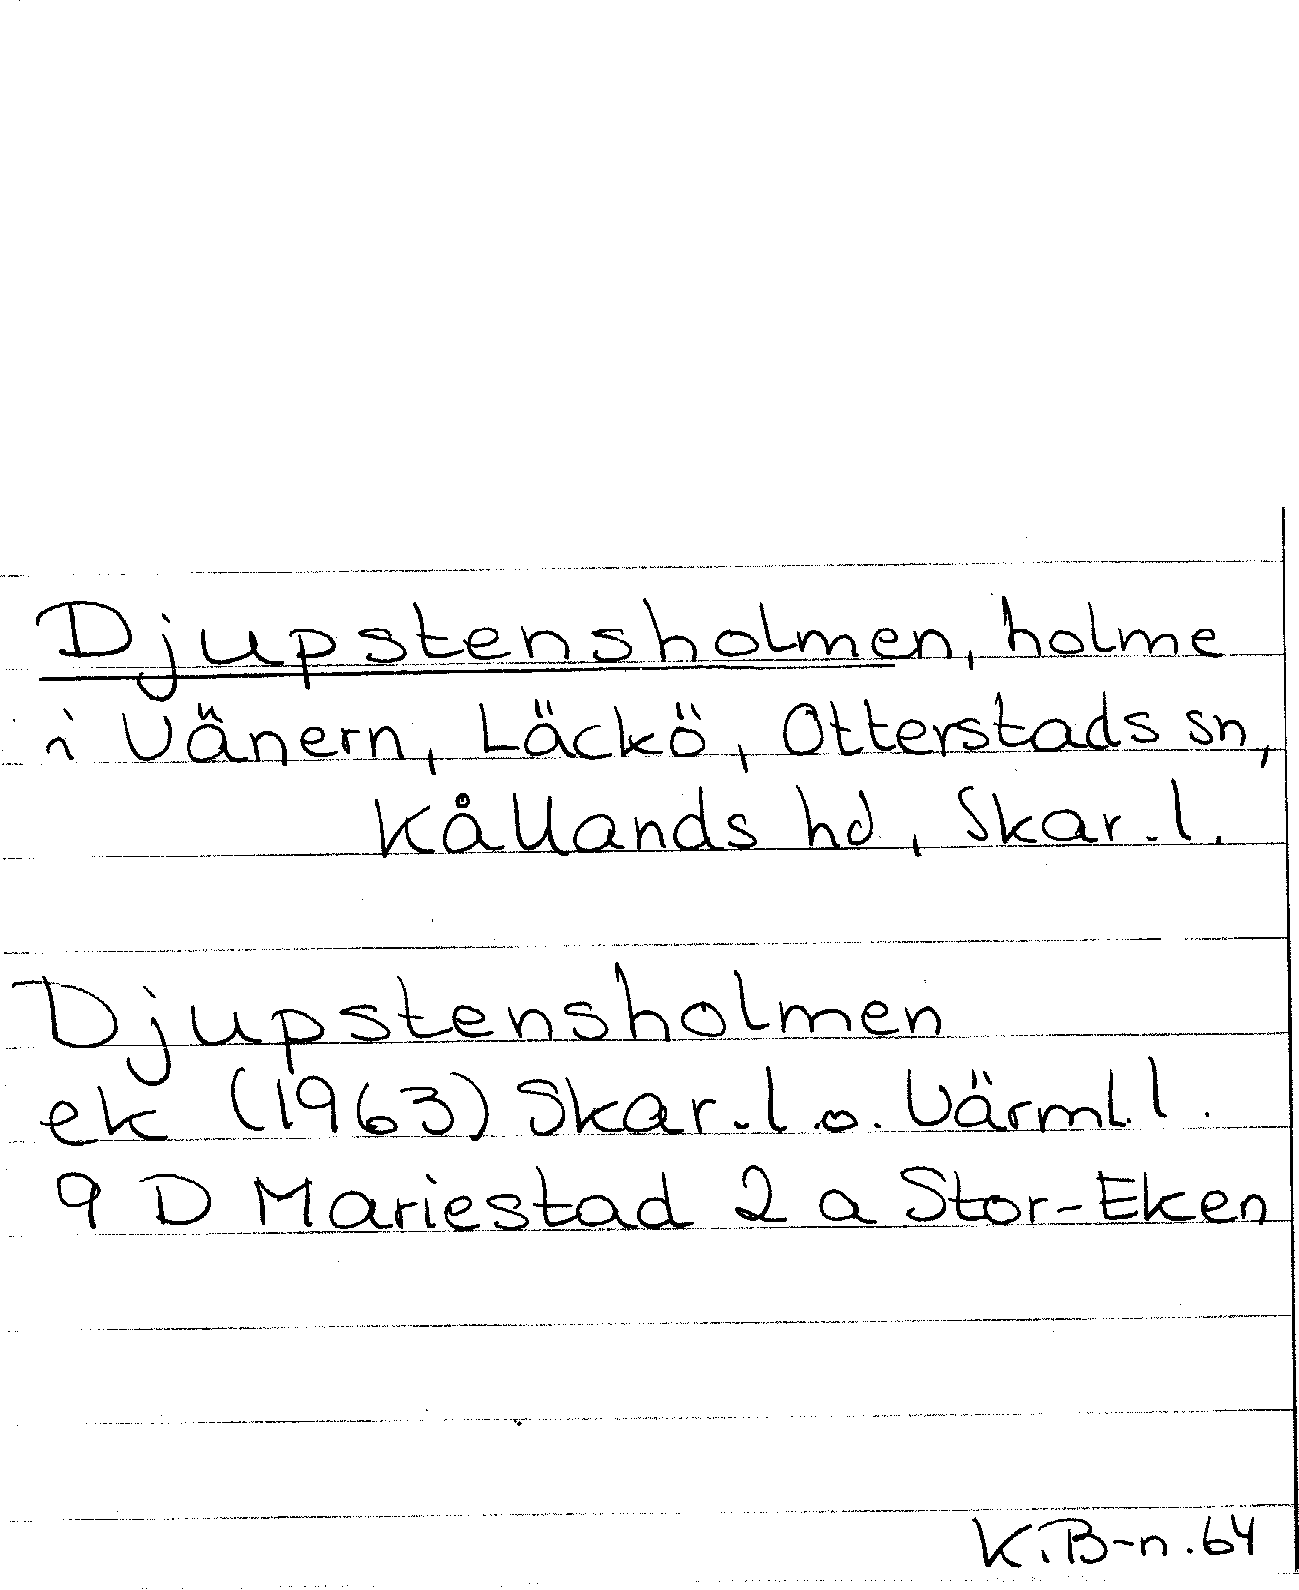 Djupstensholmen, holme
i Vänern, Läckö, Otterstads sn,
Kållands hd, Skar. l.
Djupstensholmen
ek (1963) Skar. l. o. Värml. l.
9 D Mariestad 2 a Stor-Eken
K. B-n. 64